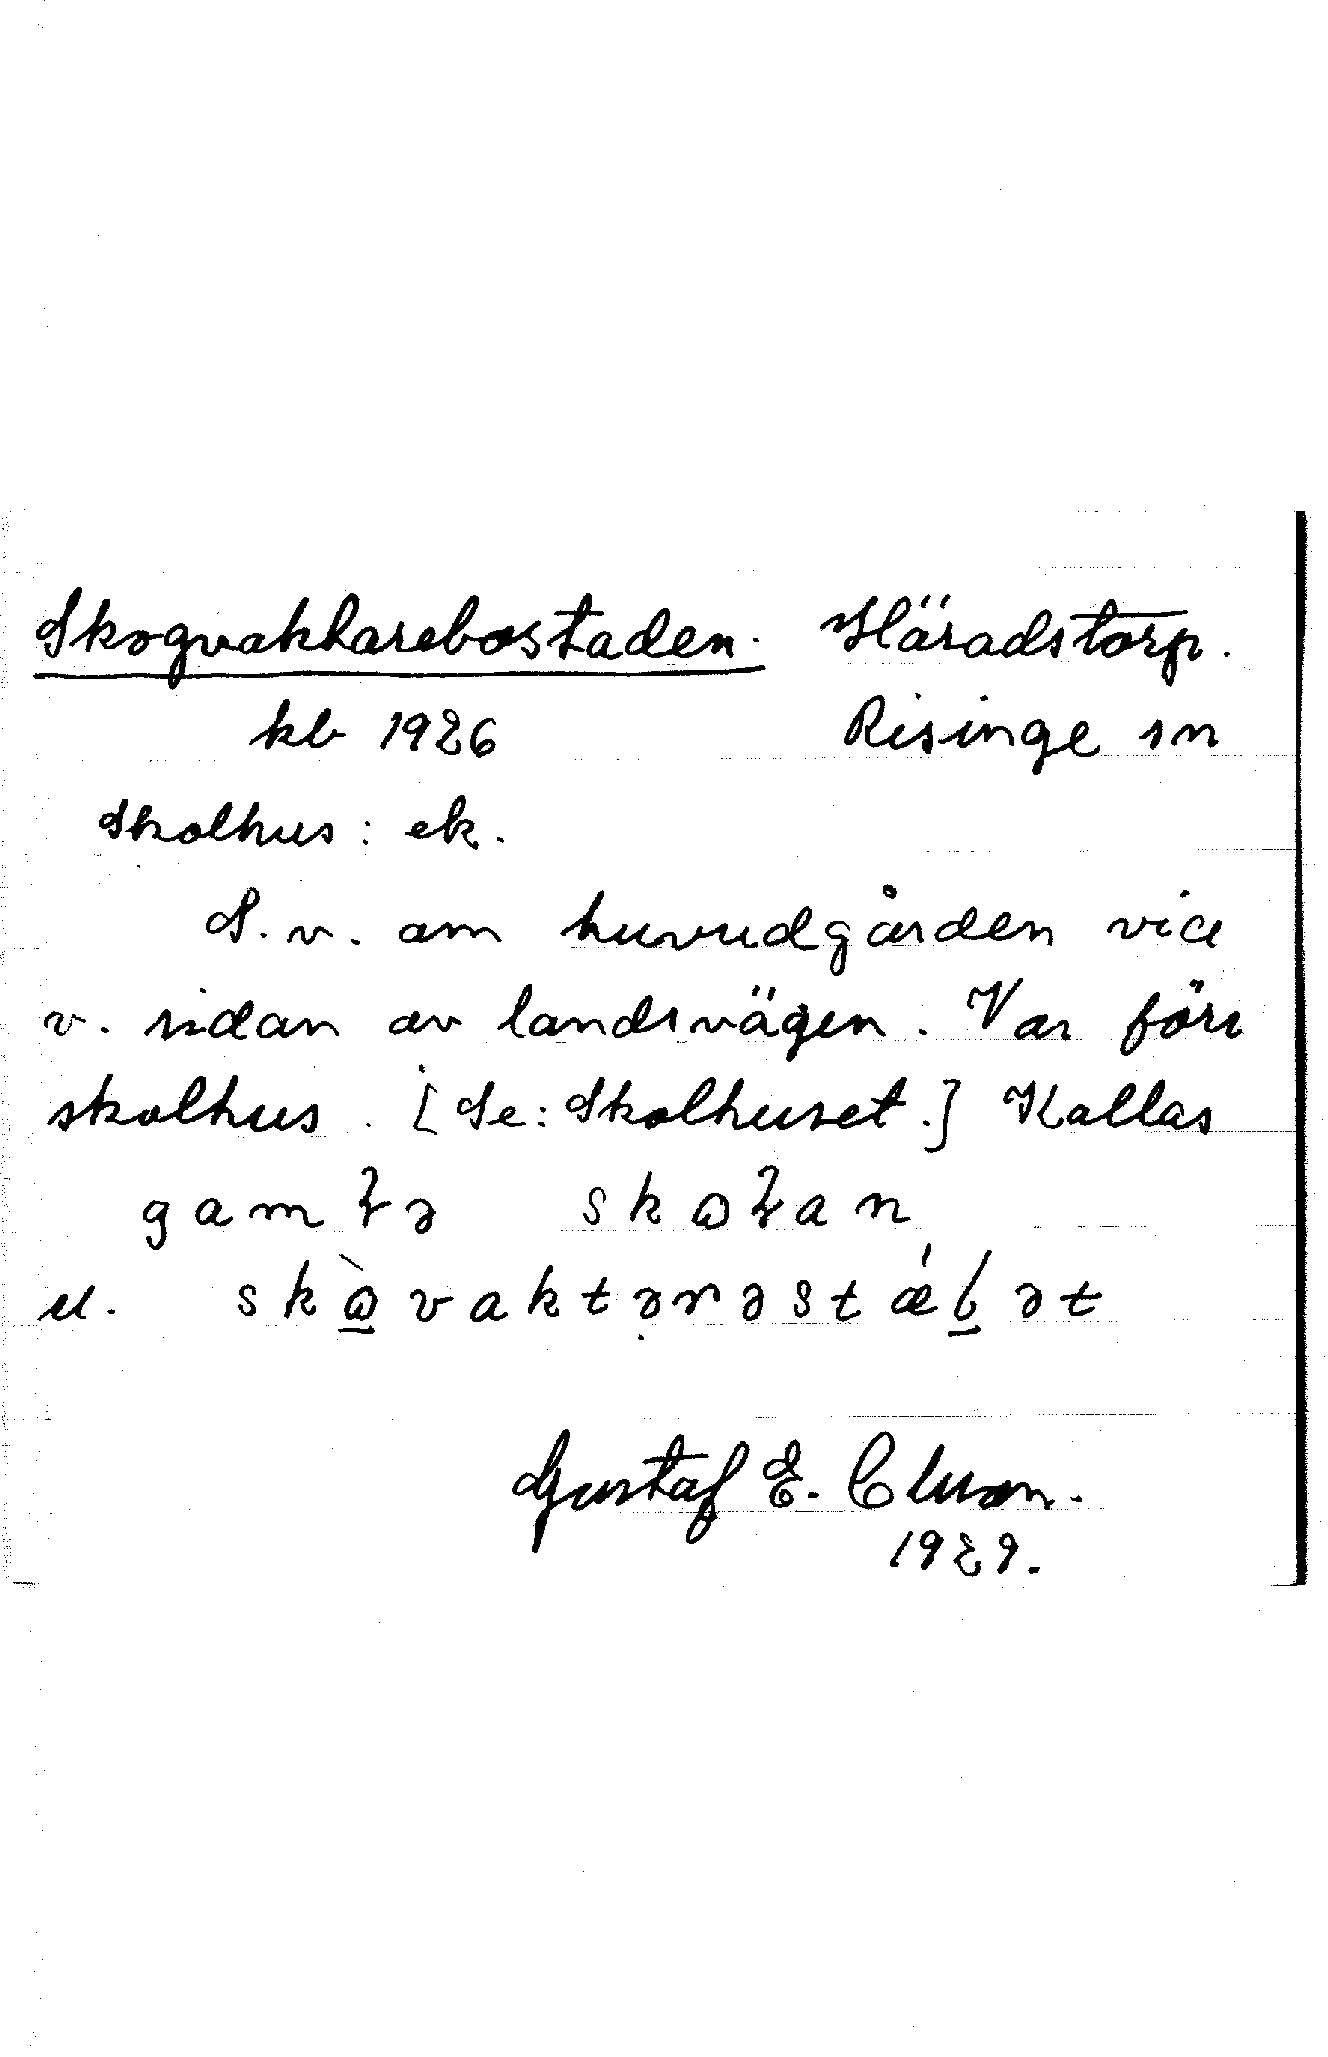 Skogvaktarebostaden. Häradstorp.
kb 1926 Risinge sn
Skolhus: ek.
S.v. om huvudgården vid
v. sidan av landsvägen. Var förr
skolhus. [Se: Skolhuset.] Kallas
gamɫə skωɫan
el. skὼ̠vaktərəstǽl̠ət
Gustaf E. Cluson.
1929.